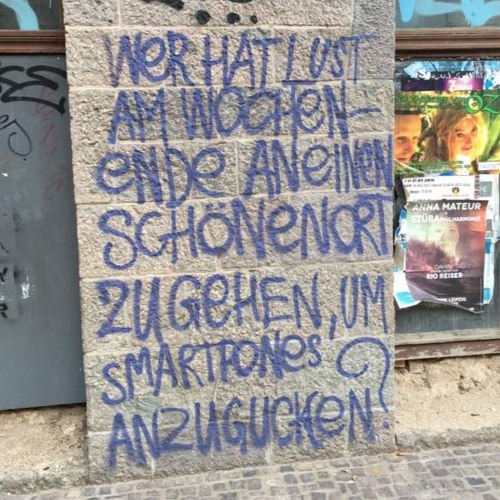 WER HAT LUST
AM WOCHEN-
ENDE AN EINEN
SCHÖNEN ORT
ZU GEHEN, UM
SMARTPONES
ANZUGUCKEN?
ANNA MATEUR
STÜBAPHILHARMONIE
RIO REISER
LEIPZIG